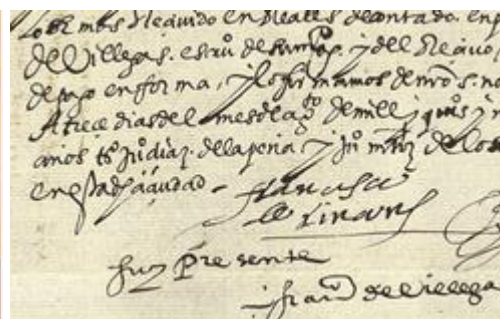 Los emos Reçiuido en Reales de contado. en
de Villegas. escriu de sumag. y del Reçiuo,
de pago en forma, y lo firmamos de nros. n
A treçe dias del mes de ag^to de mill y quis y
años t^s ju^o diaz. de la peña y ju^o mrñz de los
en esta dha çiudad
françisca
de linares
fuy presente
fran^co de Villega